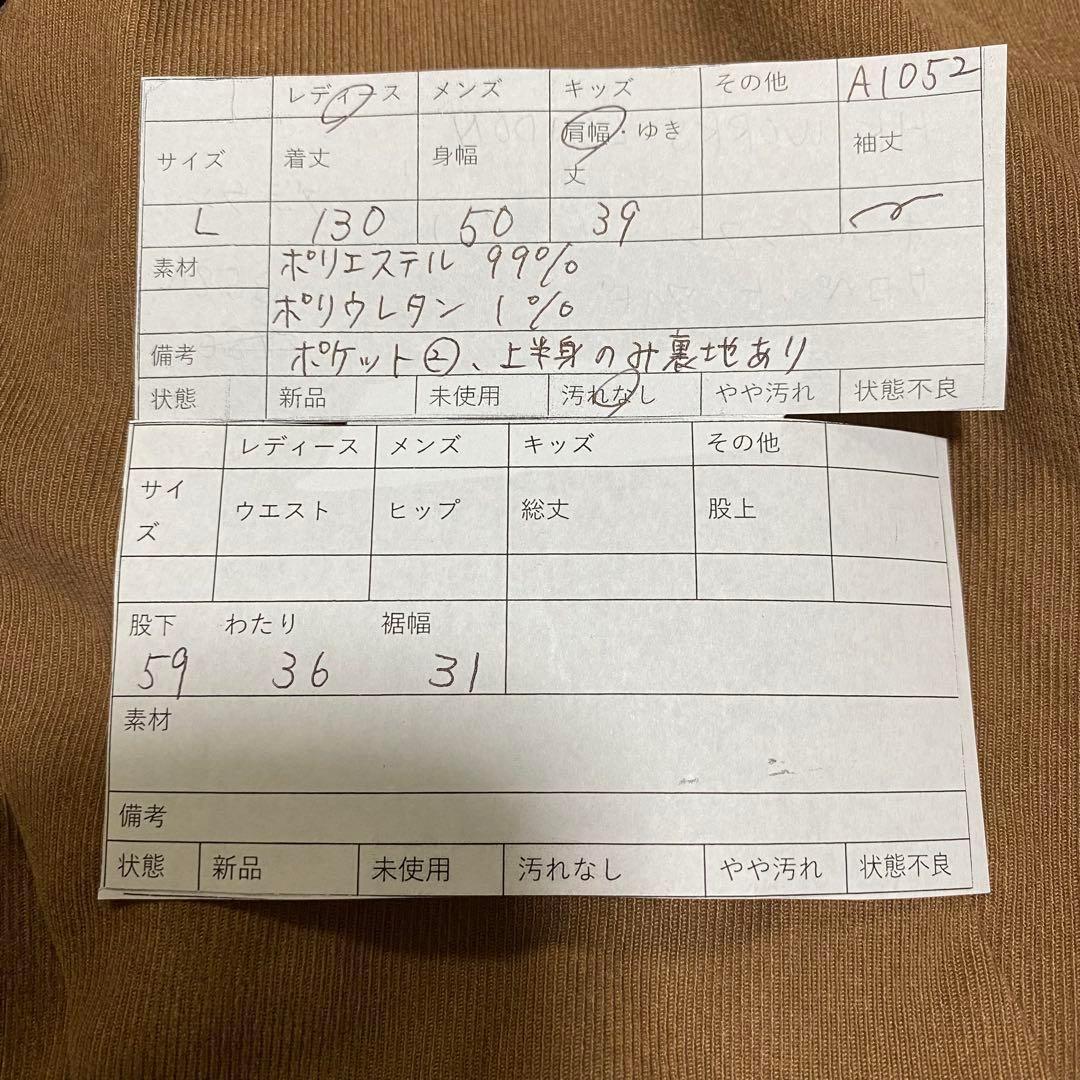 レディース メンズ キッズ その他 A1052
サイズ 着丈 身幅 肩幅・ゆき丈 袖丈
L 130 50 39
素材 ポリエステル 99%
ポリウレタン 1%
備考 ポケット②、上半身のみ裏地あり
状態 新品 未使用 汚れなし やや汚れ 状態不良
レディース メンズ キッズ その他
サイズ ウエスト ヒップ 総丈 股上
股下 わたり 裾幅
59 36 31
素材
備考
状態 新品 未使用 汚れなし やや汚れ 状態不良